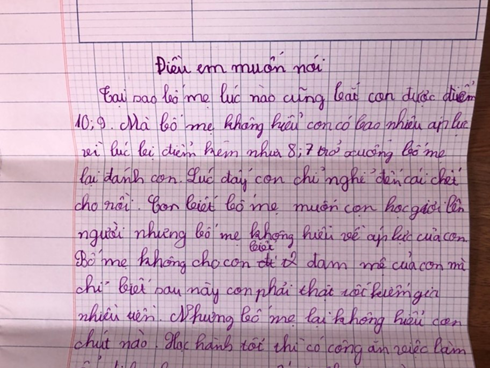 Điều em muốn nói
Tại sao bố mẹ lúc nào cũng bắt con được điểm
10; 9. Mà bố mẹ không hiểu con có bao nhiêu áp lực
vì lúc bị điểm kém như 8; 7 trở xuống bố mẹ
lại đánh con. Lúc đấy con chỉ nghĩ đến cái chết
cho rồi. Con biết bố mẹ muốn con học giỏi lên
người nhưng bố mẹ không hiểu về áp lực của con.
Bố mẹ không cho con biết đam mê của con mà
chỉ biết sau này con phải thật tốt kiếm
nhiều tiền. Nhưng bố mẹ lại không hiểu con
chút nào. Học hành tốt thì có công ăn việc làm